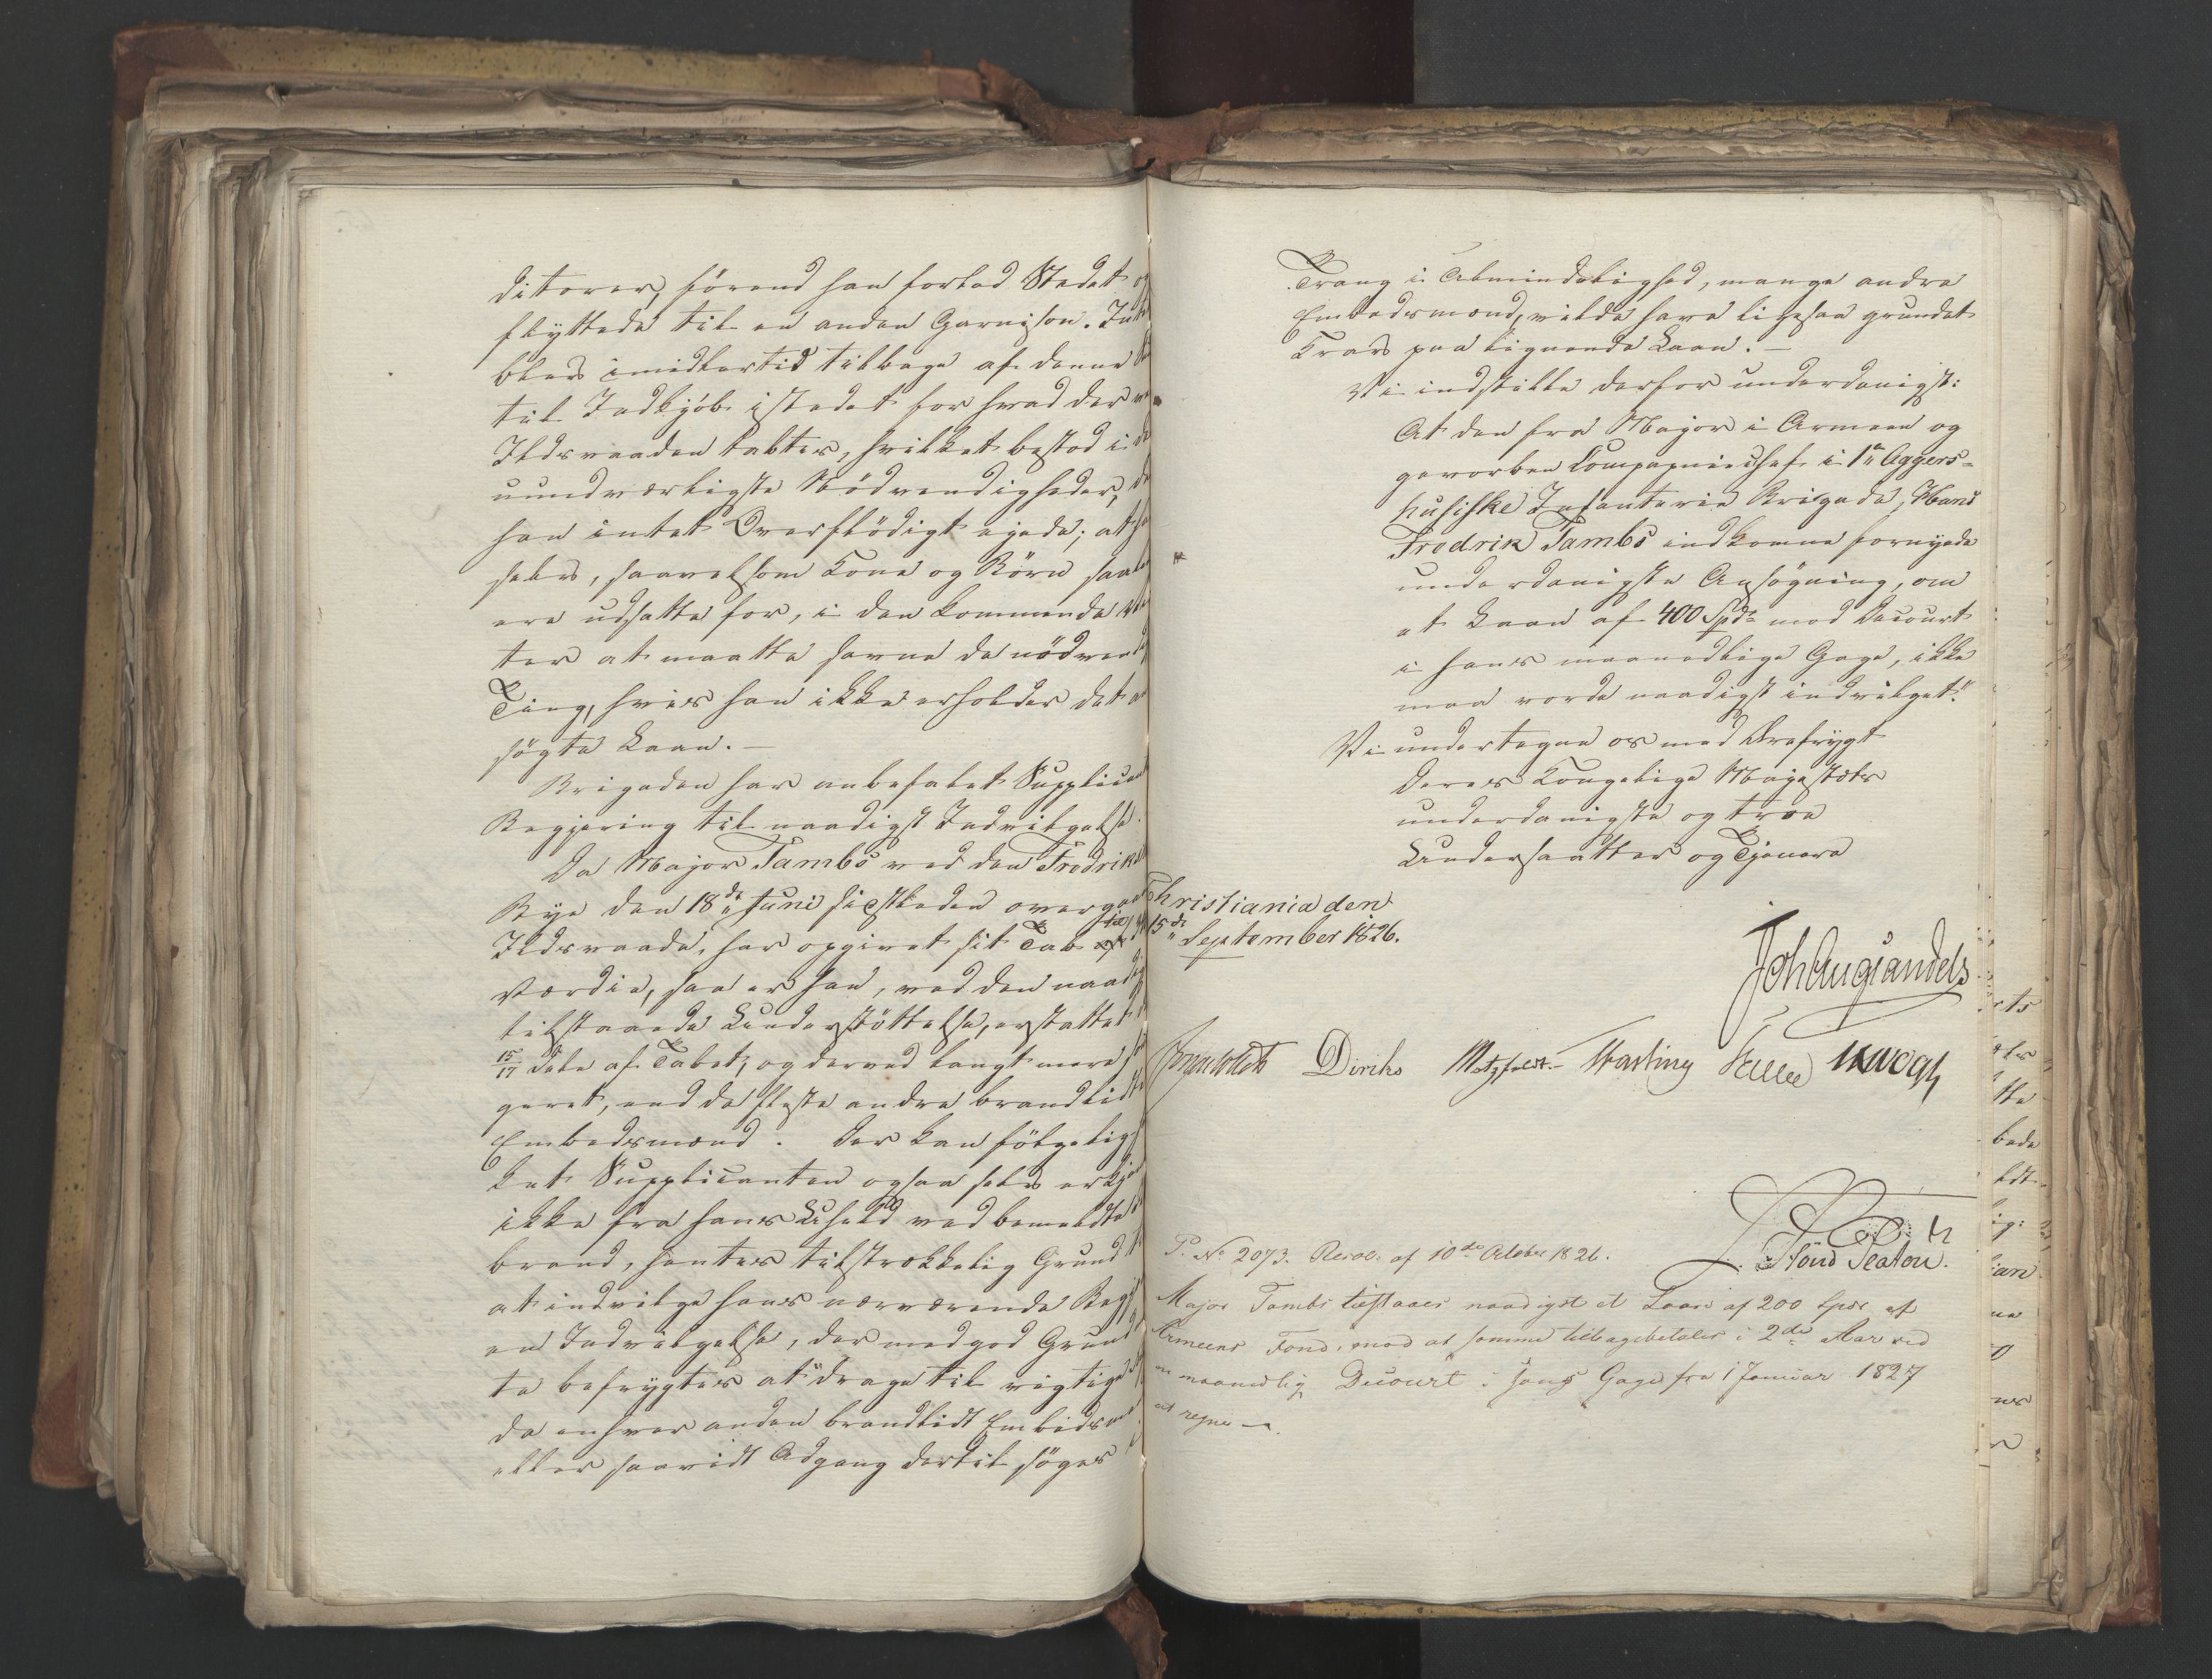 ditorer, förend han forlod Stedet og
flyttede til en anden Garnison. Intet
blev imidlertid tilbage af denne
til Indkjöb istedet for hvad der ved
Ildsvaaden tabtes, hvilket bestod i de
uundværligste Nödvendigheder, da
han intet Overflödigt ejede; at han
selv, saavelsom Kone og Börn saaledes
ere udsatte for, i den kommende Vin
ter at maatte savne de nödvendigste
Ting, hvis han ikke erholder det an
sögte Laan. —
Brigaden har anbefalet Supplicantens
Begjering til naadigst Indvilgelse.
Da Major Tambs ved den Fredriks
Bye den 18de Juni sidstleden overgaaede
Ildsvaade, har opgivet sit Tab
Værdie, saa er han, ved den naadigst
tilstaaede Understöttelse, erstattet
15/17 Dele af Tabet, og derved langt mere
geret, end de fleste andre brandlidte
Embedsmænd. Der kan fölgelig
ket Supplicanten ogsaa selv erkjender
ikke fra hans Uheld ved bemeldte
brand, hentes tilstrækkelig Grund til
at indvilge hans nærværende Begjering
en Indvilgelse, der med god Grund
te befrygtes at drage til vigtige
da enhver anden brandlidt Embedsmand
eller saavidt Adgang dertil söges
Trang i Almindelighed, mange andre
Embedsmænd, vilde have ligesaa grundet
Krav paa lignende Laan. —
Vi indstille derfor underdanigst:
At den fra Major i Armeen og
gevorben Compagniechef i 1ste Aggers-
husiske Infanterie Brigade, Hans
Fredrik Tambs indkomne fornyede
underdanigste Ansögning, om
et Laan af 400 Spd. mod Decourt
i hans maanedlige Gage, ikke
maa vorde naadigst indvilget."
Vi undertegne os med Ærefrygt
Deres Kongelige Majestæts
underdanigste og troe
Undersaatter og Tjenere
Christiania den
15de September 1826.
Joh Aug Sandels
Diriks Motzfeldt. Krogh
P. No. 2073. Resol: af 10de October 1826.
Major Tambs tilstaaes naadigst et Laan af 200 Spdr af
Armeens Fond, mod at samme tilbagebetales i 2de Aar ved
en maanedlig Decourt i hans Gage fra 1 Januar 1827
at regne —.